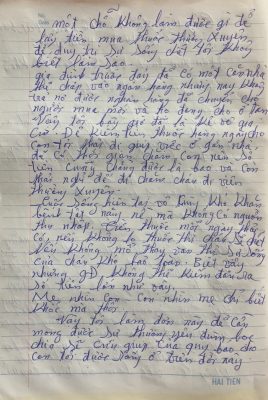 một chỗ không làm được gì để
lấy tiền mua thuốc thường xuyên
để duy trì sự sống cho tôi không
biết làm sao.
gia đình trước đây đã có một căn nhà
thế chấp vào ngân hàng nhưng nay không
trả nợ được ngân hàng đã chuyển cho
người mua mới và họ đang cho ở tạm
Vậy tôi bây giờ đã là kẻ vô gia
Cư. Để kiếm tiền thuốc hàng ngày cho
con tôi phải đi giúp việc ở gần nhà
để có thời gian chăm con nên số
tiền cũng chẳng được là bao và còn
phải nghỉ để đi chăm cháu đi viện
thường xuyên.
Cuộc sống hiện tại vô cùng khó khăn
bệnh tật nặng nề mà không có nguồn
thu nhập. Trên thực mỗi ngày phải
có, nếu không có thuốc thì cháu sẽ chết
nếu không mổ thay van thì sự sống
của cháu khó bảo đảm. Biết vậy
nhưng gđ không thể kiếm đâu ra
số tiền lớn như vậy.
Mẹ nhìn con con nhìn mẹ chỉ biết
khóc mà thôi.
Vậy tôi làm đơn này để cầu
mong được sự thương yêu đùm bọc
chia sẻ cứu giúp của quý báo cho
con tôi được sống ở trên đời này
HAI TIEN